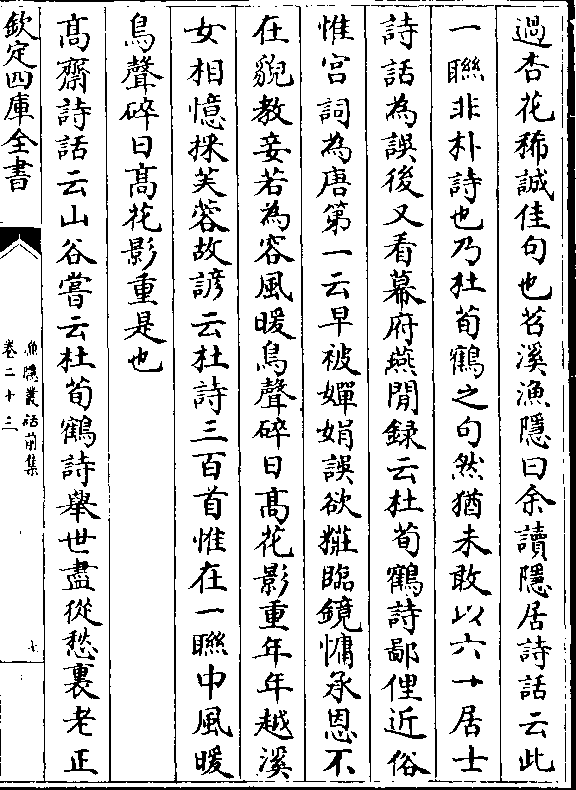 過杏花稀誠佳句也苕溪漁隱曰余讀隱居詩話云此
一聯非朴詩也乃杜荀鶴之句然猶未敢以六一居士
詩話為誤後又看幕府燕閒録云杜荀鶴詩鄙俚近俗
惟宮詞為唐第一云早被嬋娟誤欲粧臨鏡慵承恩不
在貌教妾若為容風暖鳥聲碎日髙花影重年年越溪
女相憶採芙蓉故諺云杜詩三百首惟在一聯中風暖
鳥聲碎日髙花影重是也
髙齋詩話云山谷嘗云杜荀鶴詩舉世盡從愁裏老正
欽定四庫全書
漁隱叢話前集
卷二十三
七